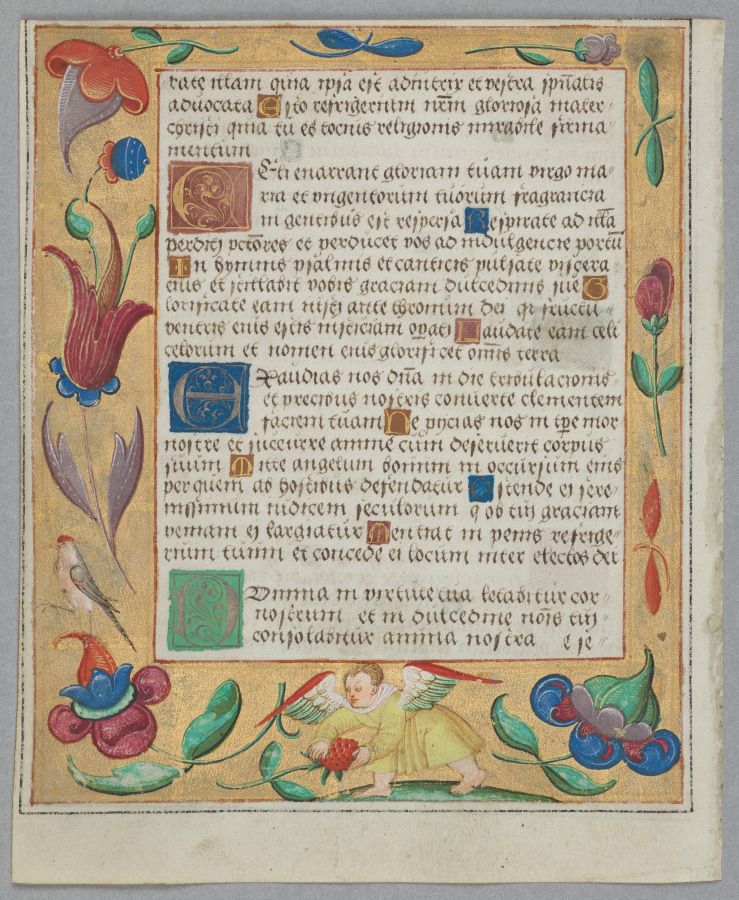 tate nram quia ipsa est adiutrix et vestra spualis
aduocata Esto refrigerium nrm gloriosa mater
christi quia tu es tocius religionis mirabile firma
mentum
Celi enarrant gloriam tuam virgo ma
ria et vngentorum tuorum fragrancia
in gentibus est respersa Respirate ad illa
perditi pctores et perducet vos ad indulgencie portu
In hymnis psalmis et canticis pulsate viscera
eius et instillabit vobis graciam dulcedinis sue G
lorificate eam iusti ante thronum dei qr fructu
ventris eius estis iusticiam opati Laudate eam celi
celorum et nomen eius glorificet omnis terra
Exaudias nos dna in die tribulacionis
et precibus nostris conuerte clementem
faciem tuam Ne proycias nos in tpe mor
nostre et succurre anime cum deseruerit corpus
suum Mitte angelum bonum in occursum eius
per quem ab hostibus defendatur Ostende ei sere
nissimum iudicem seculorum q ob tui graciam
veniam ei largiatur Sentiat in penis refrige
rium tuum et concede ei locum inter electos dei
Domina in virtute tua letabitur cor
nostrum et in dulcedine nois tui
consolabitur anima nostra